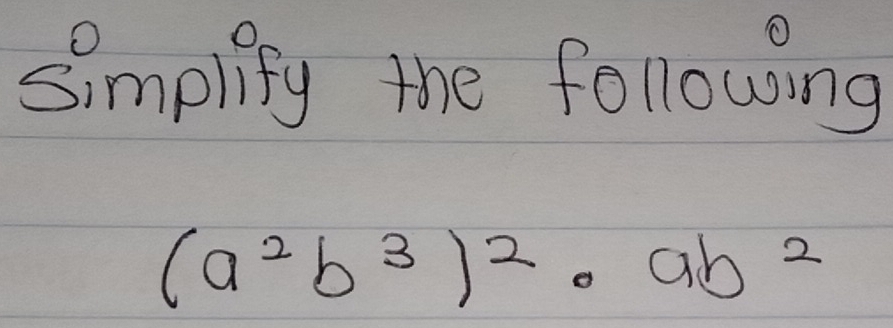 Simplify the following
(a²b³)² . ab²